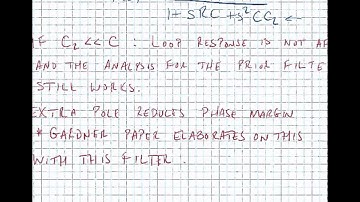 1 + SRC + S²CC₂ ←
IF C₂ << C : LOOP RESPONSE IS NOT AF
AND THE ANALYSIS FOR THE PRIOR FILTE
STILL WORKS.
EXTRA POLE REDUCES PHASE MARGIN
* GARDNER PAPER ELABORATES ON THIS
WITH THIS FILTER.